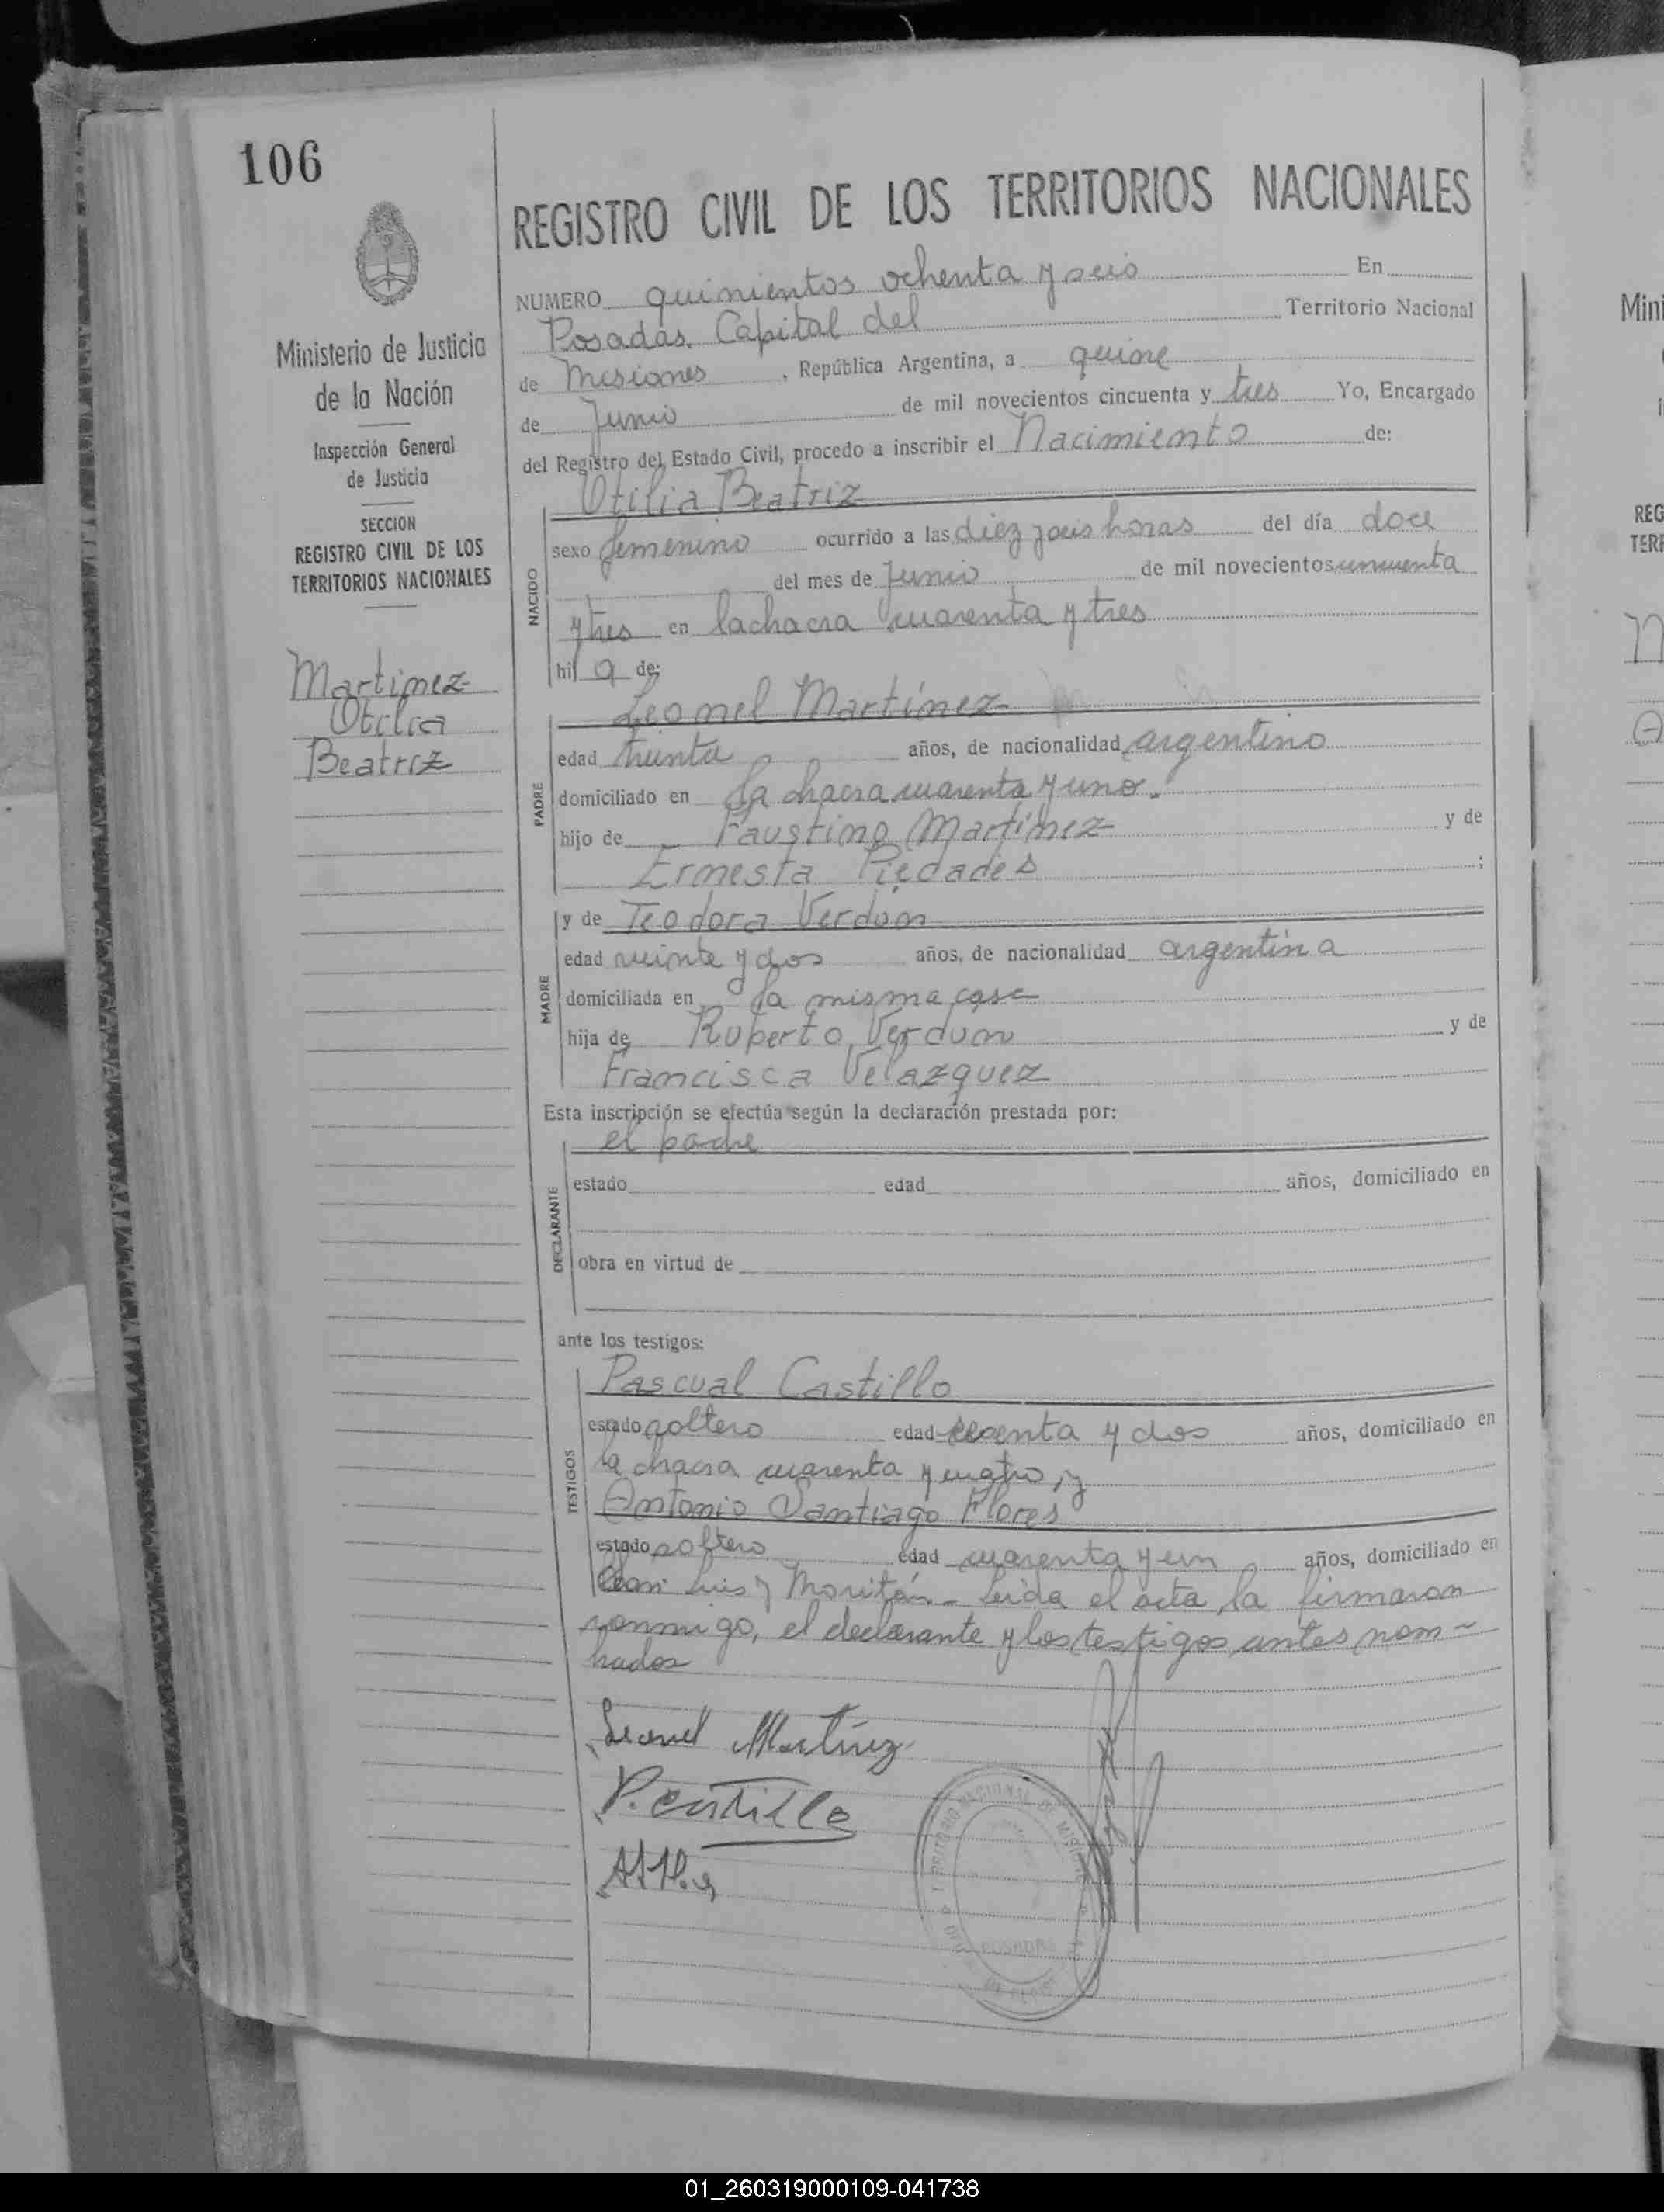 106
REGISTRO CIVIL DE LOS TERRITORIOS NACIONALES
NUMERO quinientos ochenta y seis En
Posadas, Capital del Territorio Nacional
de Misiones, República Argentina, a quince
de Junio de mil novecientos cincuenta y tres Yo, Encargado
del Registro del Estado Civil, procedo a inscribir el Nacimiento de:
Otilia Beatriz
NACIDO
sexo femenino ocurrido a las diez y seis horas del día doce
del mes de Junio de mil novecientos cincuenta
y tres en la chacra cuarenta y tres
hij a de:
Leonel Martínez
PADRE
edad treinta años, de nacionalidad argentino
domiciliado en la chacra cuarenta y uno.
hijo de Faustino Martínez y de
Ernesta Piedades ;
y de Teodora Verdun
MADRE
edad veinte y dos años, de nacionalidad argentina
domiciliada en la misma casa
hija de Ruperto Verdun y de
Francisca Velazquez
Esta inscripción se efectúa según la declaración prestada por:
el padre
DECLARANTE
estado edad años, domiciliado en
obra en virtud de
ante los testigos:
Pascual Castillo
TESTIGOS
estado soltero edad y dos años, domiciliado en
la chacra cuarenta y cuatro, y
Antonio Santiago Flores
estado soltero edad cuarenta y un años, domiciliado en
San Luis y Moritán - Leida el acta, la firmaron
conmigo, el declarante y los testigos antes nom-
brados
Leonel Martínez
P. Castillo
Ministerio de Justicia
de la Nación
Inspección General
de Justicia
SECCION
REGISTRO CIVIL DE LOS
TERRITORIOS NACIONALES
Martinez
Otilia
Beatriz
POSADAS
Mini
REG
TERR
01_260319000109-041738